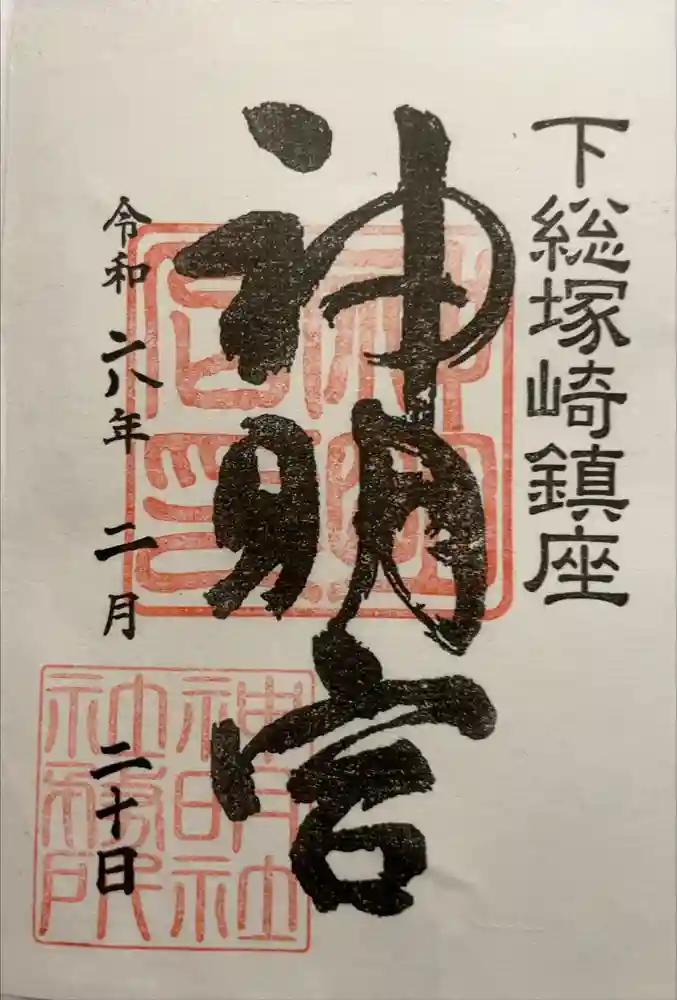 下総塚崎鎮座
神明宮
令和 六年 二月 二十日
神明社
社務所